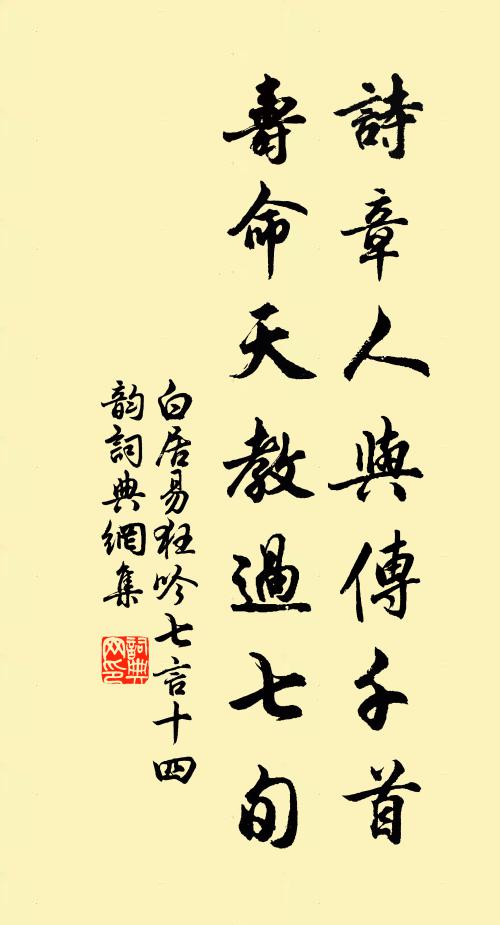 詩章人與傳千首
壽命天教過七旬
白居易狂吟七言十四
韵詞典網集
詞典
网印